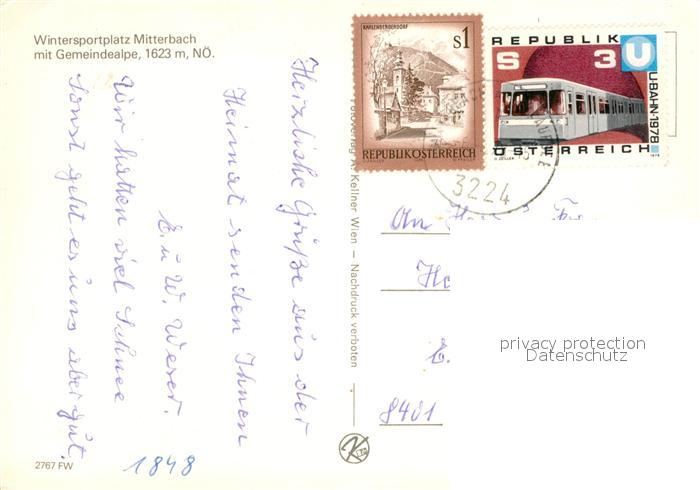 Wintersportplatz Mitterbach
mit Gemeindealpe, 1623 m, NÖ.
KAHLENBERGERDORF
S1
REPUBLIK ÖSTERREICH
REPUBLIK
S 3 U
U BAHN·1978
ÖSTERREICH
3224
Herzliche Grüße aus der
Heimat senden Ihnen
E. u W. Weser.
Wir hatten viel Schnee
Sonst geht es uns aber gut.
Fotoverlag A. Kellner Wien – Nachdruck verboten
An
8401
privacy protection
Datenschutz
2767 FW
1848